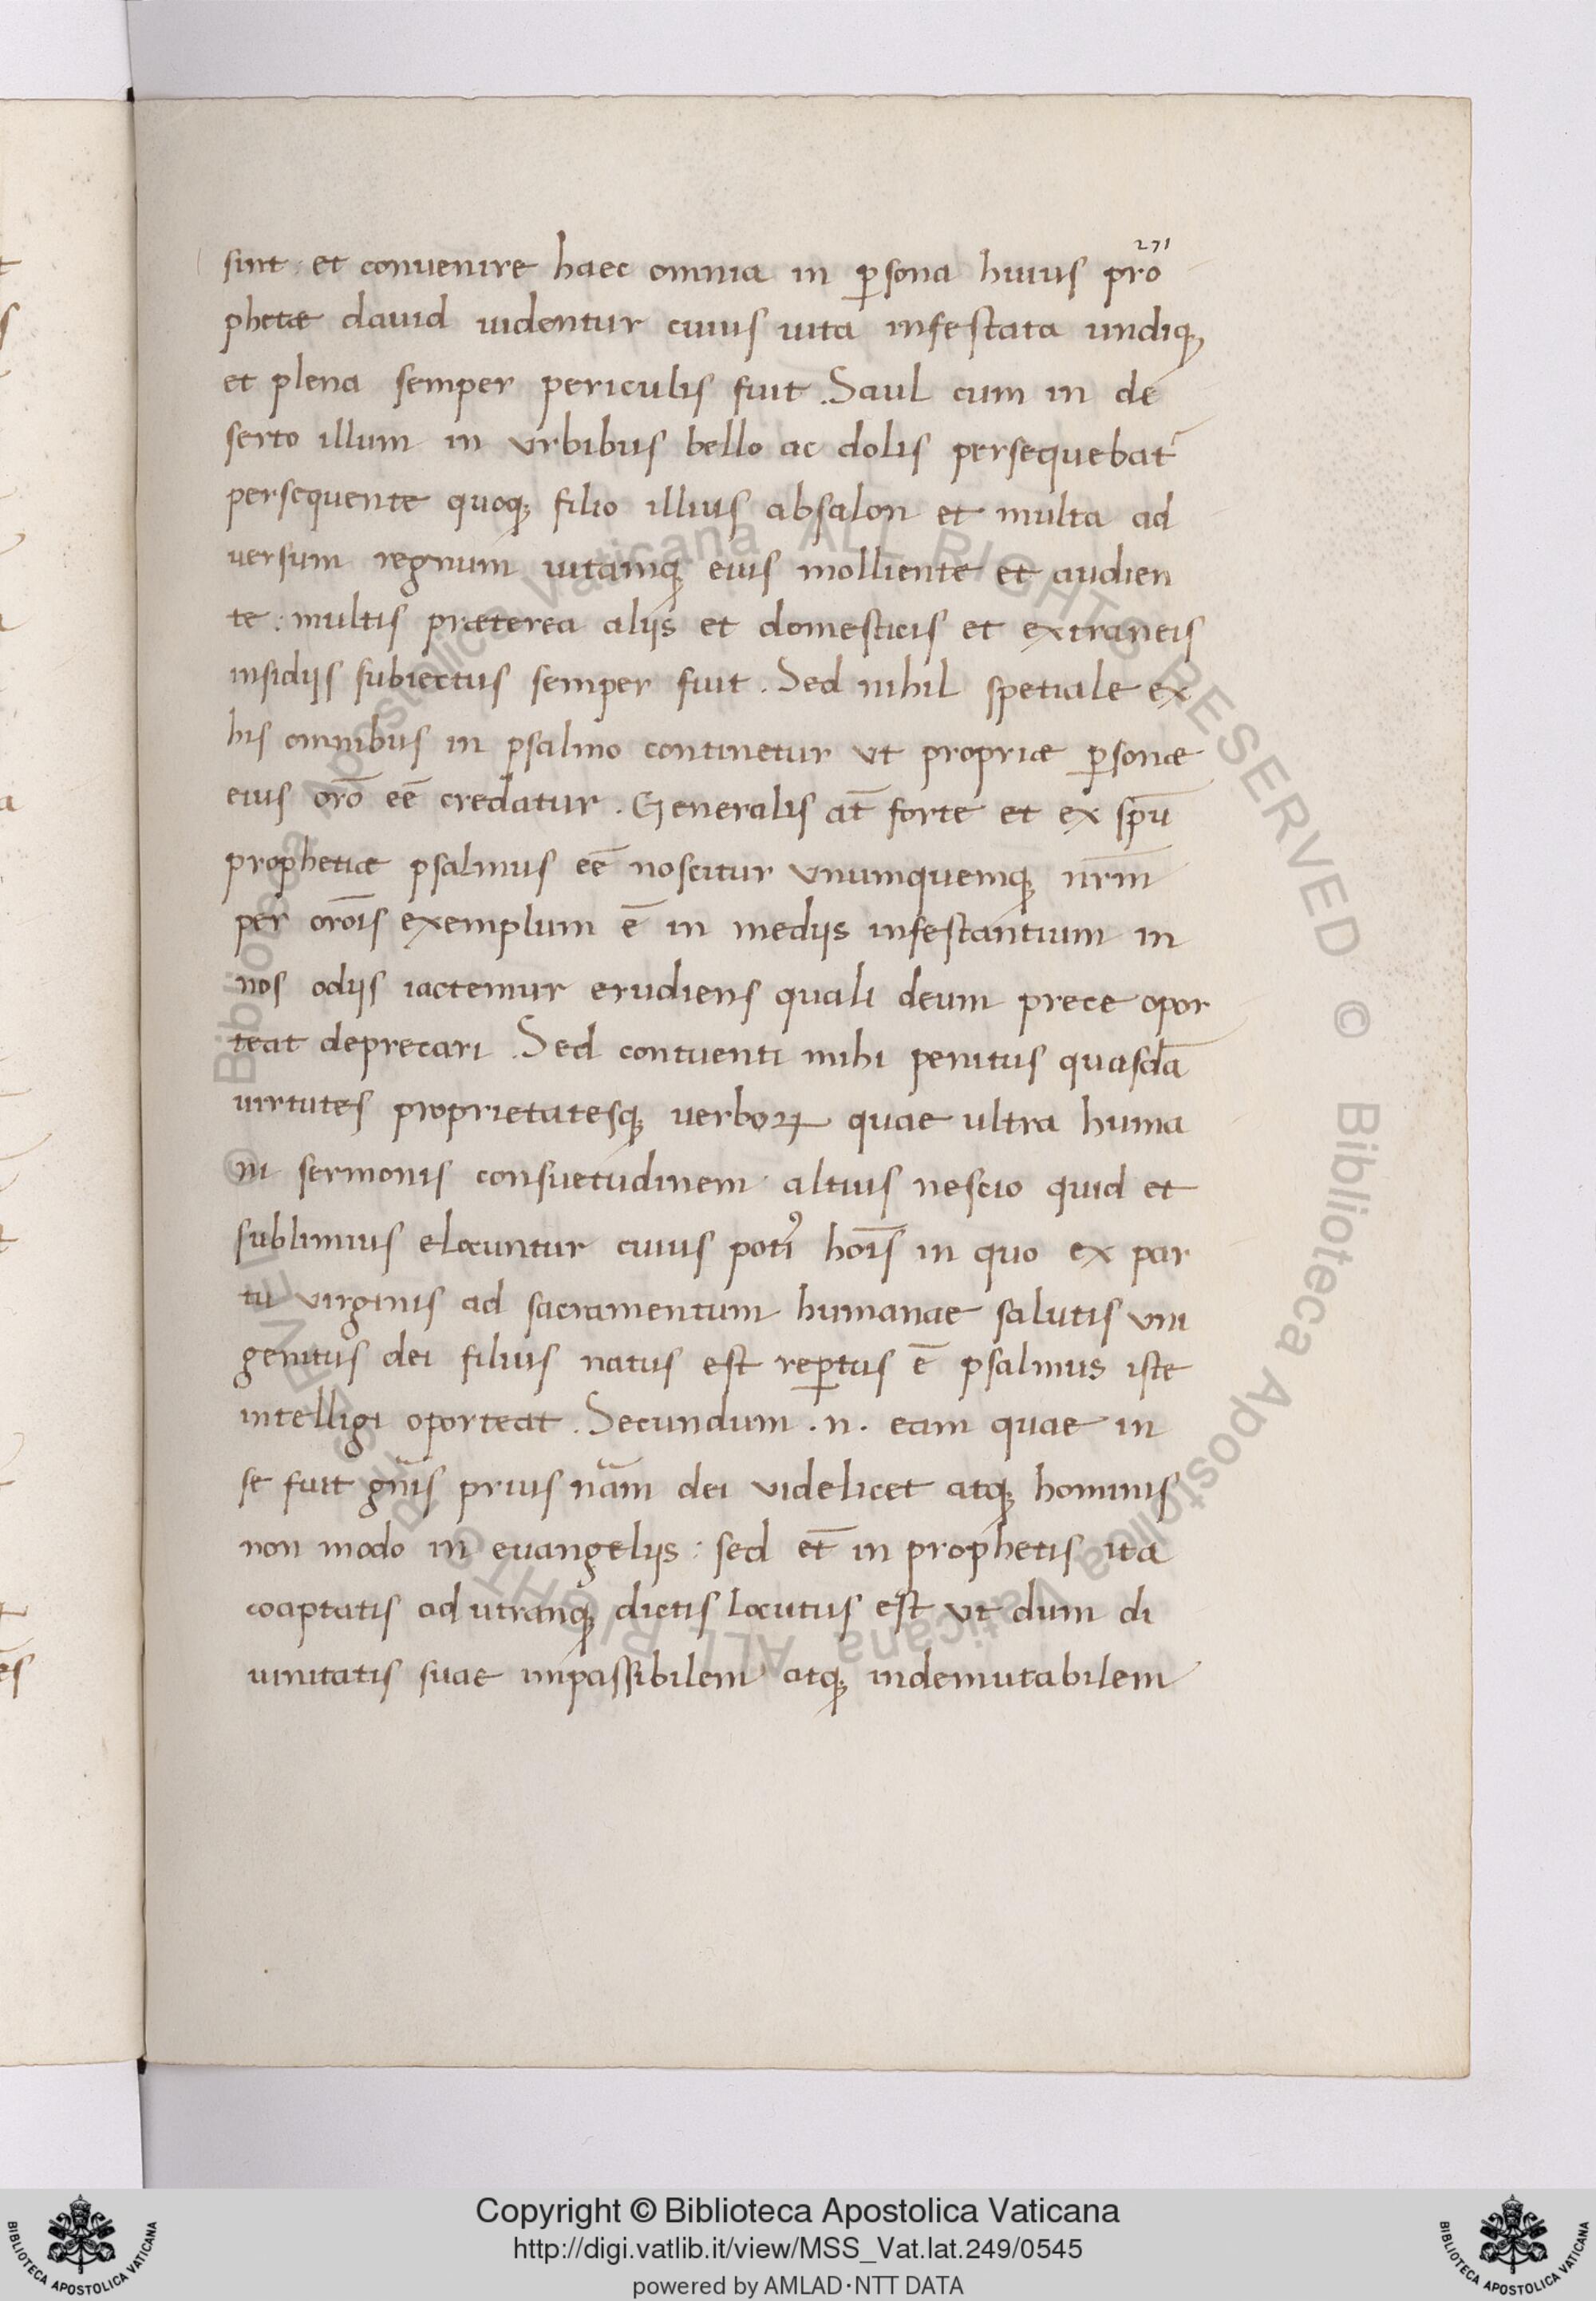 271
sint : et conuenire haec omnia in ꝑsona huius pro
phetæ dauid uidentur cuius uita infestata undiqꝫ
et plena semper periculis fuit . Saul cum in de
serto illum in vrbibus bello ac dolis persequebat᷑
persequente quoqꝫ filio illius absalon et multa ad
uersum regnum uitamqꝫ eius molliente et audien
te : multis præterea aliis et domesticis et extraneis
insidiis subiectus semper fuit . Sed nihil spetiale ex
his omnibus in psalmo continetur vt propriæ ꝑsonæ
eius orō eē credatur . Generalis at̄ forte et ex spū
prophetiæ psalmus eē noscitur vnumquemqꝫ nr̄m
per orōis exemplum ē in mediis infestantium in
nos odiis iactemur erudiens quali deum prece opor
teat deprecari . Sed contuenti mihi penitus quasdā
uirtutes proprietatesqꝫ uerboꝝ quae ultra huma
ni sermonis consuetudinem altius nescio quid et
sublimius elocuntur cuius potiꝰ hoīs in quo ex par
tu virginis ad sacramentum humanae salutis vni
genitus dei filius natus est reꝑtus ē psalmus iste
intelligi oporteat . Secundum .n. eam quae in
se fuit gn̄is prius nām dei videlicet atqꝫ hominis
non modo in euangeliis : sed et̄ in prophetis ita
coaptatis ad utranqꝫ dictis locutus est vt dum di
uinitatis suae impassibilem atqꝫ indemutabilem
Copyright © Biblioteca Apostolica Vaticana
http://digi.vatlib.it/view/MSS_Vat.lat.249/0545
powered by AMLAD·NTT DATA
BIBLIOTECA APOSTOLICA VATICANA
BIBLIOTECA APOSTOLICA VATICANA
© Biblioteca Apostolica Vaticana ALL RIGHTS RESERVED
© Biblioteca Apostolica Vaticana ALL RIGHTS RESERVED